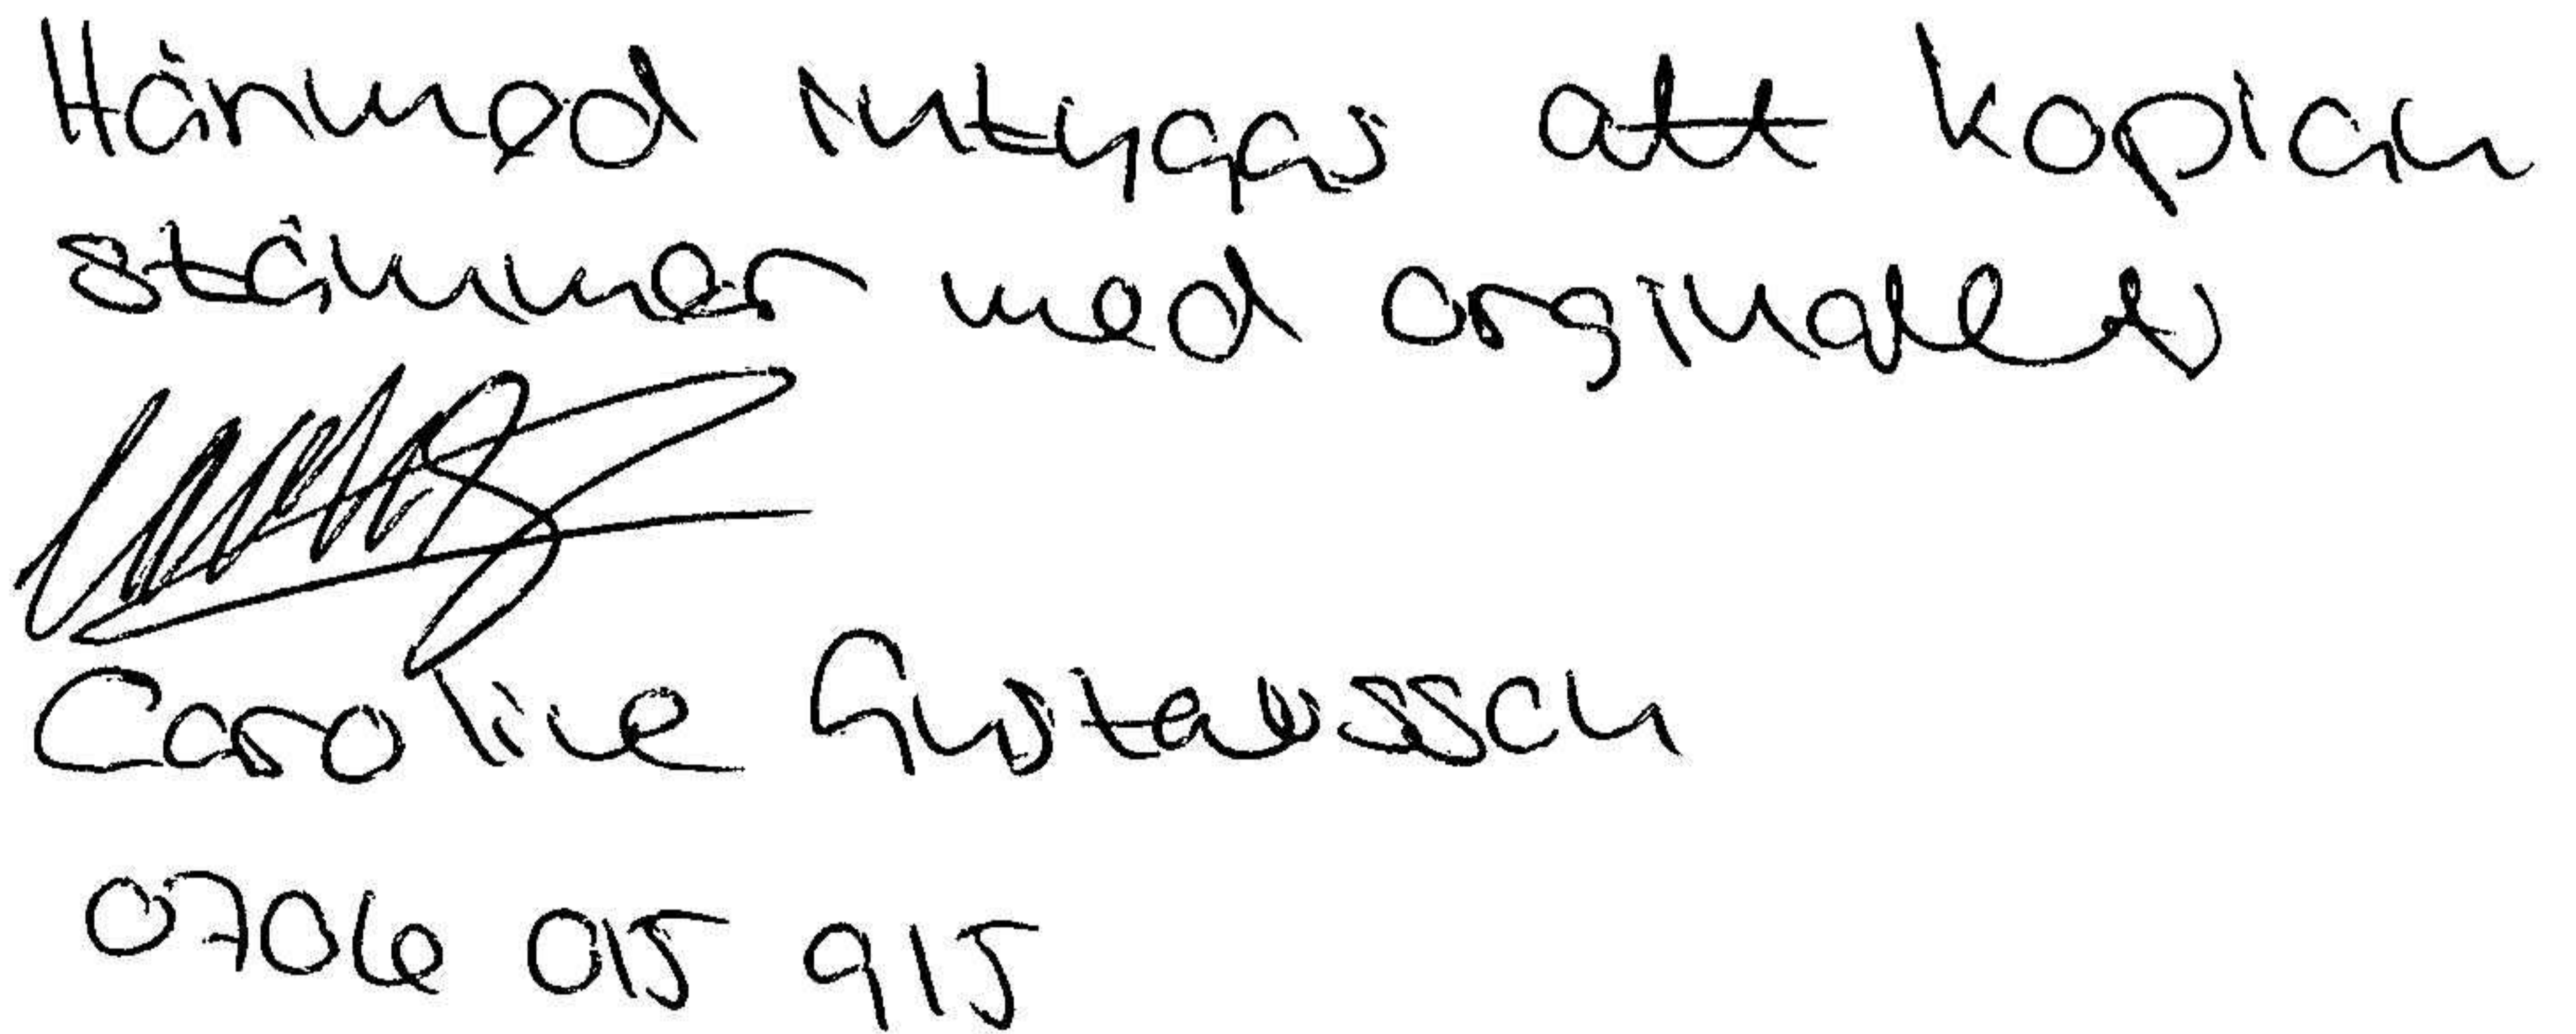 Härmed intygas att kopian
stämmer med orginalets
Caroline Gustavsson
0706 015 915